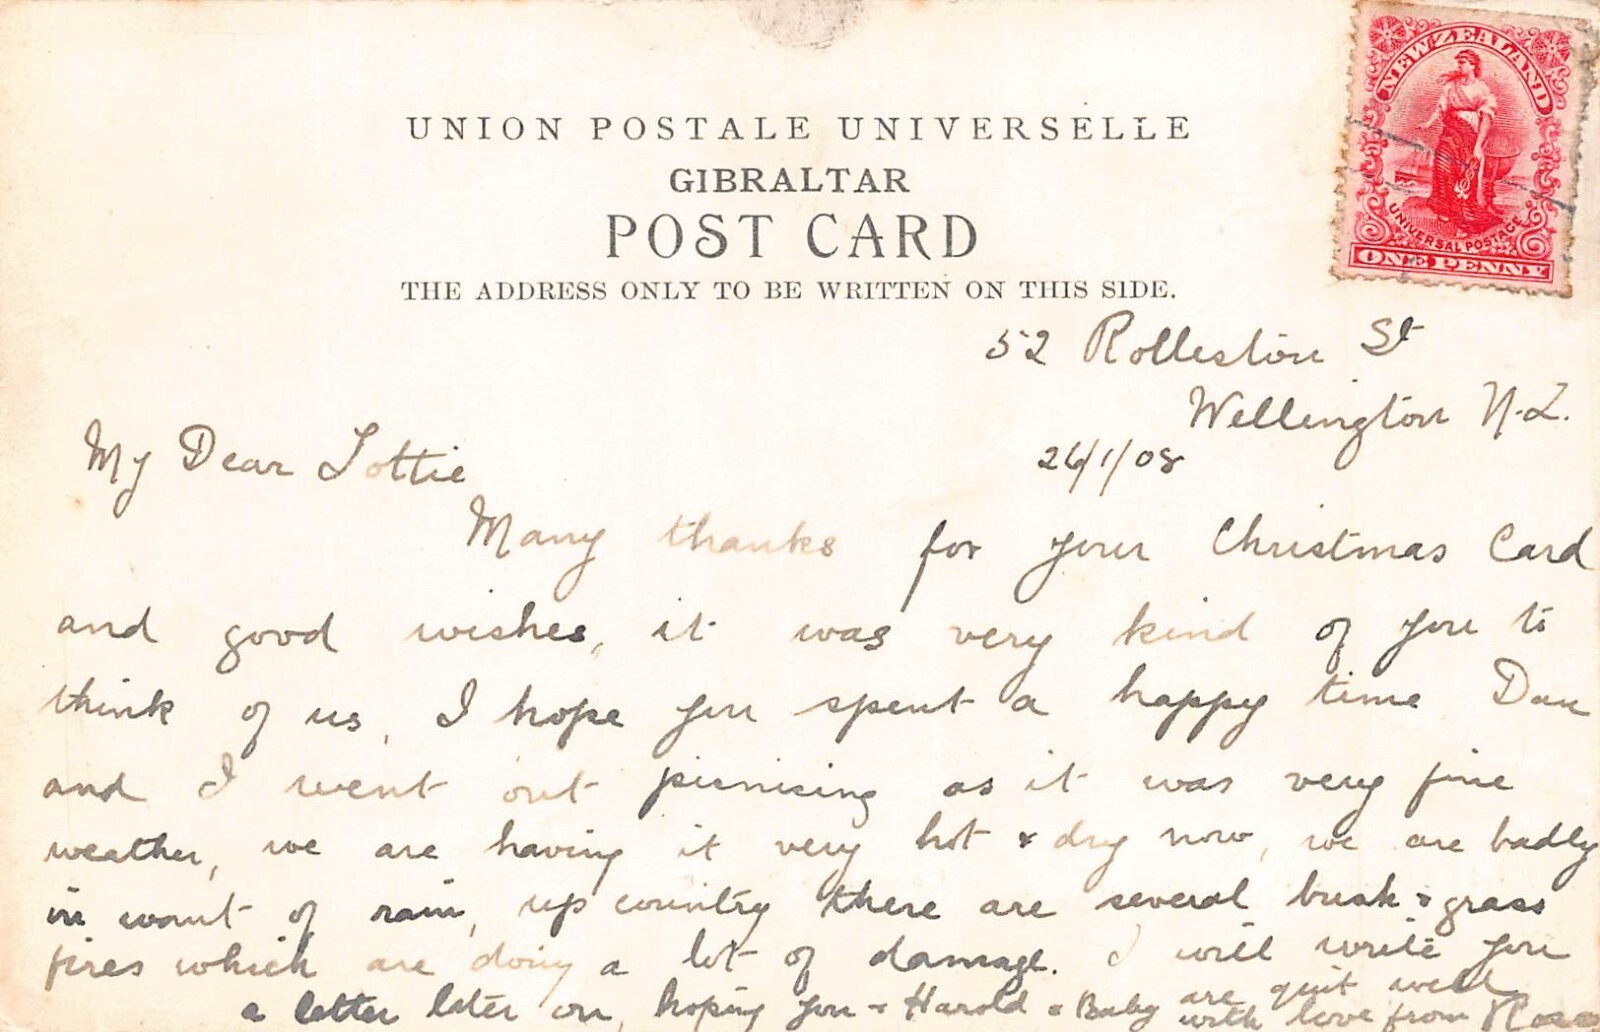 UNION POSTALE UNIVERSELLE
GIBRALTAR
POST CARD
THE ADDRESS ONLY TO BE WRITTEN ON THIS SIDE.
NEW ZEALAND
UNIVERSAL POSTAGE
ONE PENNY
52 Rolleston St
Wellington N.Z.
26/1/08
My Dear Lottie
Many thanks for your Christmas Card
and good wishes, it was very kind of you to
think of us, I hope you spent a happy time Dan
and I went out picnicing as it was very fine
weather, we are having it very hot & dry now, we are badly
in want of rain, up country there are several bush & grass
fires which are doing a lot of damage. I will write you
a letter later on, hoping you & Harold & Baby are quit well
with love from Rose